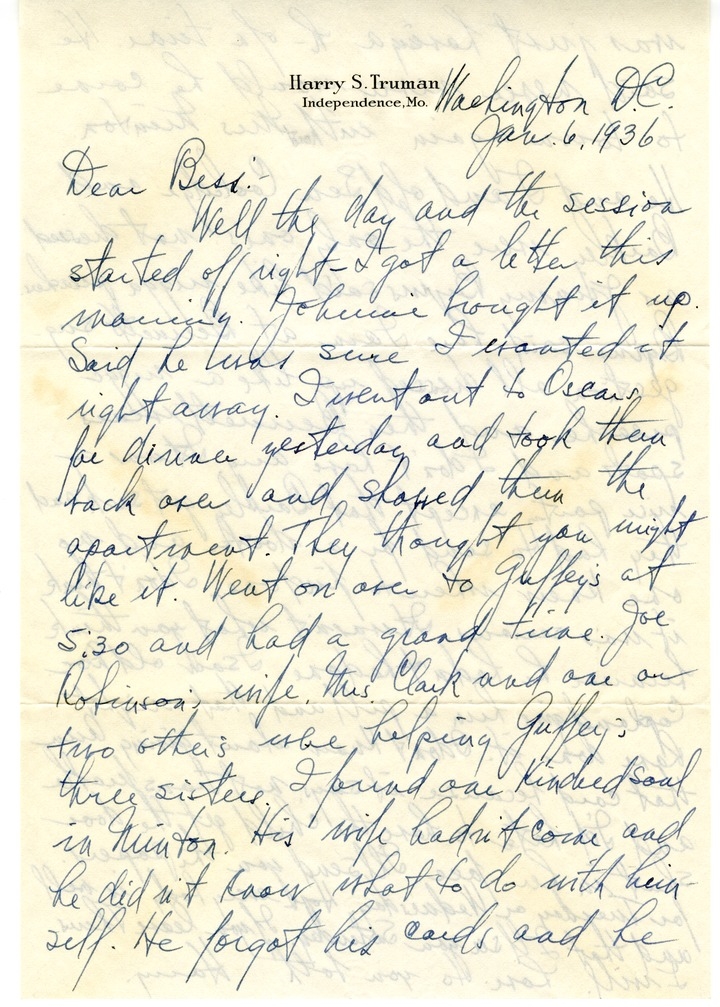 Harry S. Truman
Independence, Mo.
Washington D.C.
Jan. 6, 1936
Dear Bess:-
Well the day and the session
started off right - I got a letter this
morning. Johnnie brought it up.
Said he was sure I wanted it
right away. I went out to Oscars
for dinner yesterday and took them
back over and showed them the
apartment. They thought you might
like it. Went on over to Guffey's at
5:30 and had a grand time. Joe
Robinson's wife, Mrs. Clark and one or
two others were helping Guffey's
three sisters. I found one kindred soul
in Minton. His wife hadn't come and
he didn't know what to do with him-
self. He forgot his cards and he